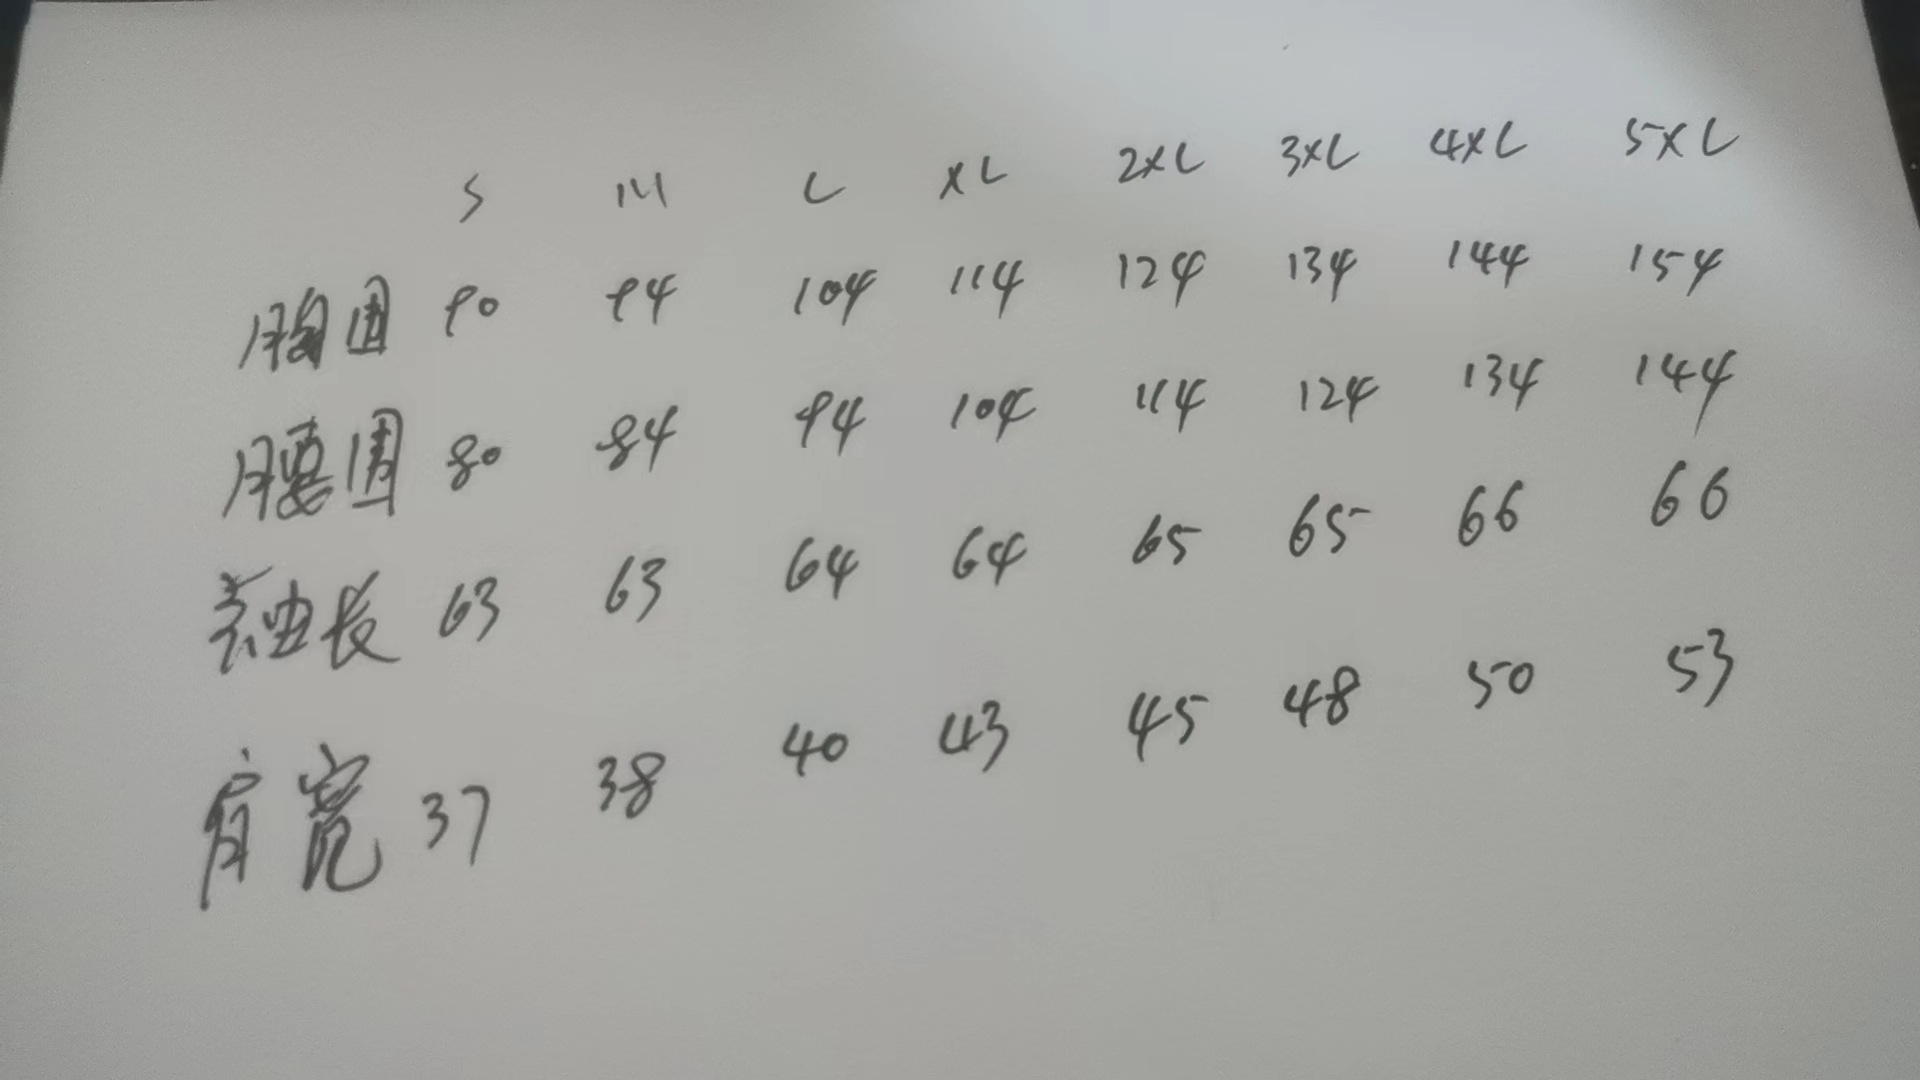 S M L XL 2XL 3XL 4XL 5XL
胸围 90 94 104 114 124 134 144 154
腰围 80 84 94 104 114 124 134 144
袖长 63 63 64 64 65 65 66 66
肩宽 37 38 40 43 45 48 50 53